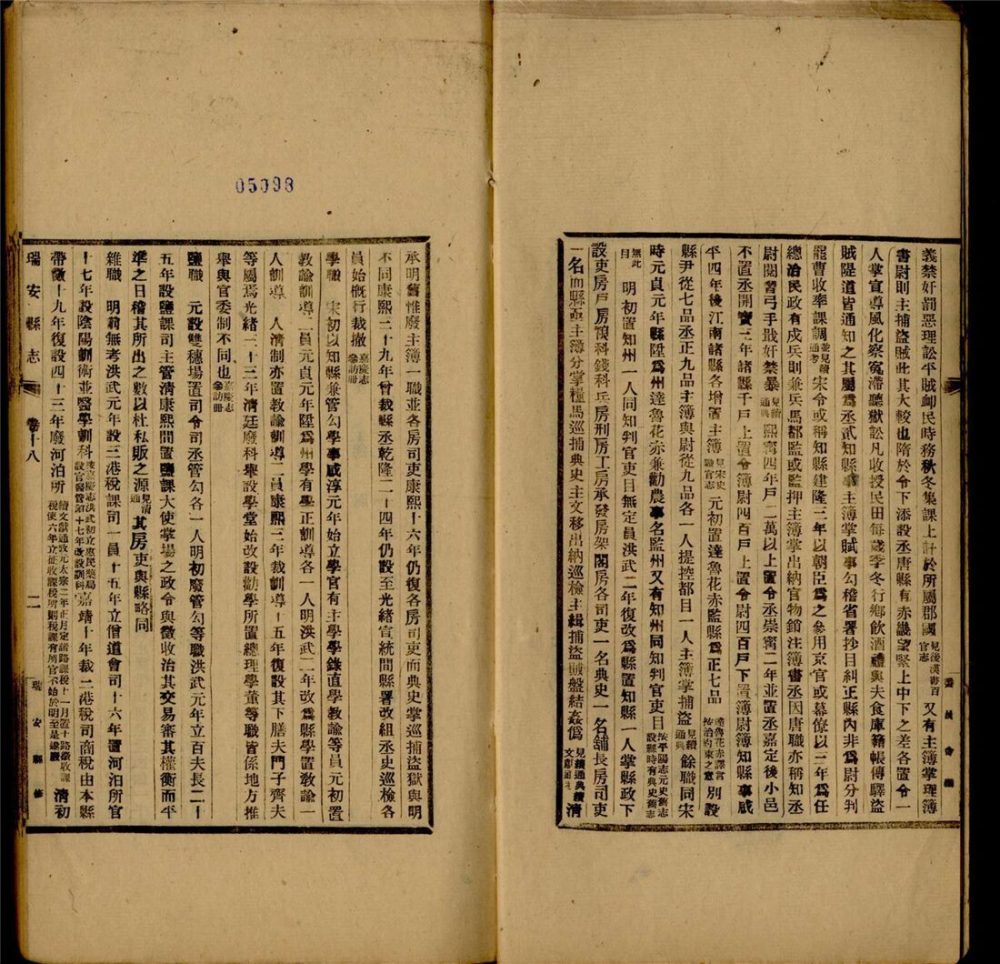 義禁奸罰惡理訟平賊卹民時務秋冬集課上計於所屬郡國見後漢書百官志又有主簿掌理簿
書尉則主捕盜賊此其大較也隋於令下添設丞唐縣有赤畿望緊上中下之差各置令一
人掌宣導風化察寃滯聽獄訟凡收授民田每歲季冬行鄉飲酒禮與夫倉庫籍帳傳驛盜
賊隄道皆通知之其屬爲丞貳知縣事主簿掌賦事勾稽省署抄目糾正縣內非爲尉分判
諸曹收率課調並見續通考宋令或稱知縣建隆三年以朝臣爲之參用京官或幕僚以三年爲任
總治民政有戍兵則兼兵馬都監或監押主簿掌出納官物銷注簿書丞因唐職亦稱知丞
尉閱習弓手戢奸禁暴見續通典熙寗四年戶二萬以上置令丞崇寗二年並置丞嘉定後小邑
不置丞開寶三年諸縣千戶上置令簿尉四百戶上置令尉四百戶下置簿尉簿知縣事咸
平四年後江南諸縣各增置主簿見宋史職官志元初置達魯花赤監縣爲正七品達魯花赤譯言按治約束之意別設
縣尹從七品丞正九品主簿與尉從九品各一人提控都目一人主簿掌捕盜見續通典餘職同宋
時元貞元年縣陞爲州達魯花赤兼勸農事名監州又有知州同知判官吏目按平陽志元史舊志設縣時有典史舊志
無此目明初置知州一人同知判官吏目無定員洪武二年復改爲縣置知縣一人掌縣政下
設吏房戶房禮科錢科兵房刑房工房承發房架閣房各司吏一名典史一名舖長房司吏
一名而縣丞主簿分掌糧馬巡捕典史主文移出納巡檢主緝捕盜賊盤結姦僞見續通典清
承明舊惟廢主簿一職並各房司吏康熙十六年仍復各房司吏而典史掌巡捕盜獄與明
不同康熙二十九年曾裁縣丞乾隆二十四年仍設至光緖宣統間縣署改組丞史巡檢各
員始槪行裁撤嘉慶志參訪冊
學職　宋初以知縣兼管勾學事咸淳元年始立學官有主學學錄直學敎諭等員元初置
敎諭訓導二員元貞元年陞爲州學有學正訓導各一人明洪武二年改爲縣學置敎諭一
人訓導二人淸制亦置敎諭訓導二員康熙三年裁訓導十五年復設其下膳夫門子齊夫
等屬焉光緖三十三年淸廷廢科舉設學堂始改設勸學所置總理學董等職皆係地方推
舉與官委制不同也嘉慶志參訪冊
鹽職　元設雙穗場置司令司丞管勾各一人明初廢管勾等職洪武元年立百夫長二十
五年設鹽課司主管淸康熙間置鹽課大使掌場之政令與徵收治其交易審其權衡而平
準之日稽其所出之數以杜私販之源見淸通其房吏與縣略同
雜職　明前無考洪武元年設三港稅課司一員十五年立僧道會司十六年置河泊所官
十七年設陰陽訓術並醫學訓科按嘉慶志洪武初立惠民藥局設官醫管領十七年改設訓科嘉靖十年裁二港稅司商稅由本縣
帶徵十九年復設四十三年廢河泊所淸初
瑞安縣志
卷十八
二
瑞安縣修
05098